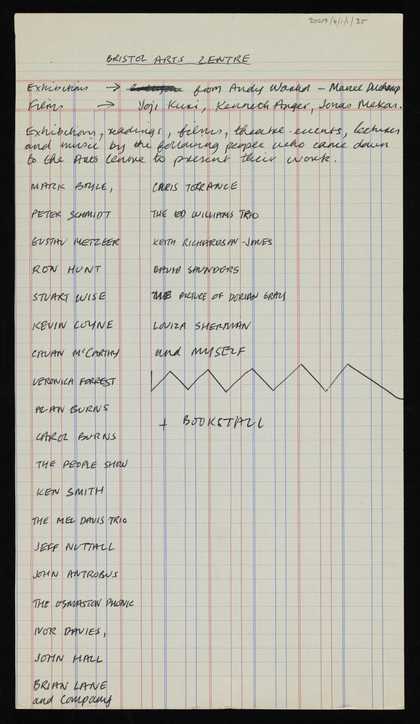 BRISTOL ARTS CENTRE
Exhibitions → from Andy Warhol – Marcel Duchamp
Films → Yoji Kuri, Kenneth Anger, Jonas Mekas.
Exhibitions, readings, films, theatre-events, lectures
and music by the following people who came down
to the Arts Centre to present their work.
MARK BOYLE, CHRIS TORRANCE
PETER SCHMIDT THE ED WILLIAMS TRIO
GUSTAV METZGER KEITH RICHARDSON-JONES
RON HUNT DAVID SAUNDERS
STUART WISE THE PICTURE OF DORIAN GRAY
KEVIN COYNE LOUIZA SHERMAN
CAVAN McCARTHY and MYSELF
VERONICA FORREST
ALAN BURNS + BOOKSTALL
CAROL BURNS
THE PEOPLE SHOW
KEN SMITH
THE MEL DAVIS TRIO
JEFF NUTTALL
JOHN ANTROBUS
THE OSMASTON PHONIC
IVOR DAVIES,
JOHN HALL
BRIAN LANE
and Company